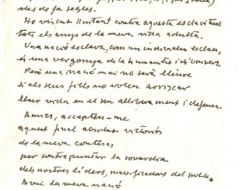 des de fa segles.
He viscut lluitant contra aquesta esclavitud
tots els anys de la meva vida adulta.
Una nació esclava, com un individu esclau,
és una vergonya de la humanitat i de l'univers.
Però una nació mai no serà lliure
si els seus fills no volen arriscar
llur vida en el seu alliberament i defensa.
Amics, accepteu-me
aquest final absolut victoriós
de la meva contesa,
per contrapuntar la covardia
dels nostres líders, massificadors del poble.
Avui la meva nació